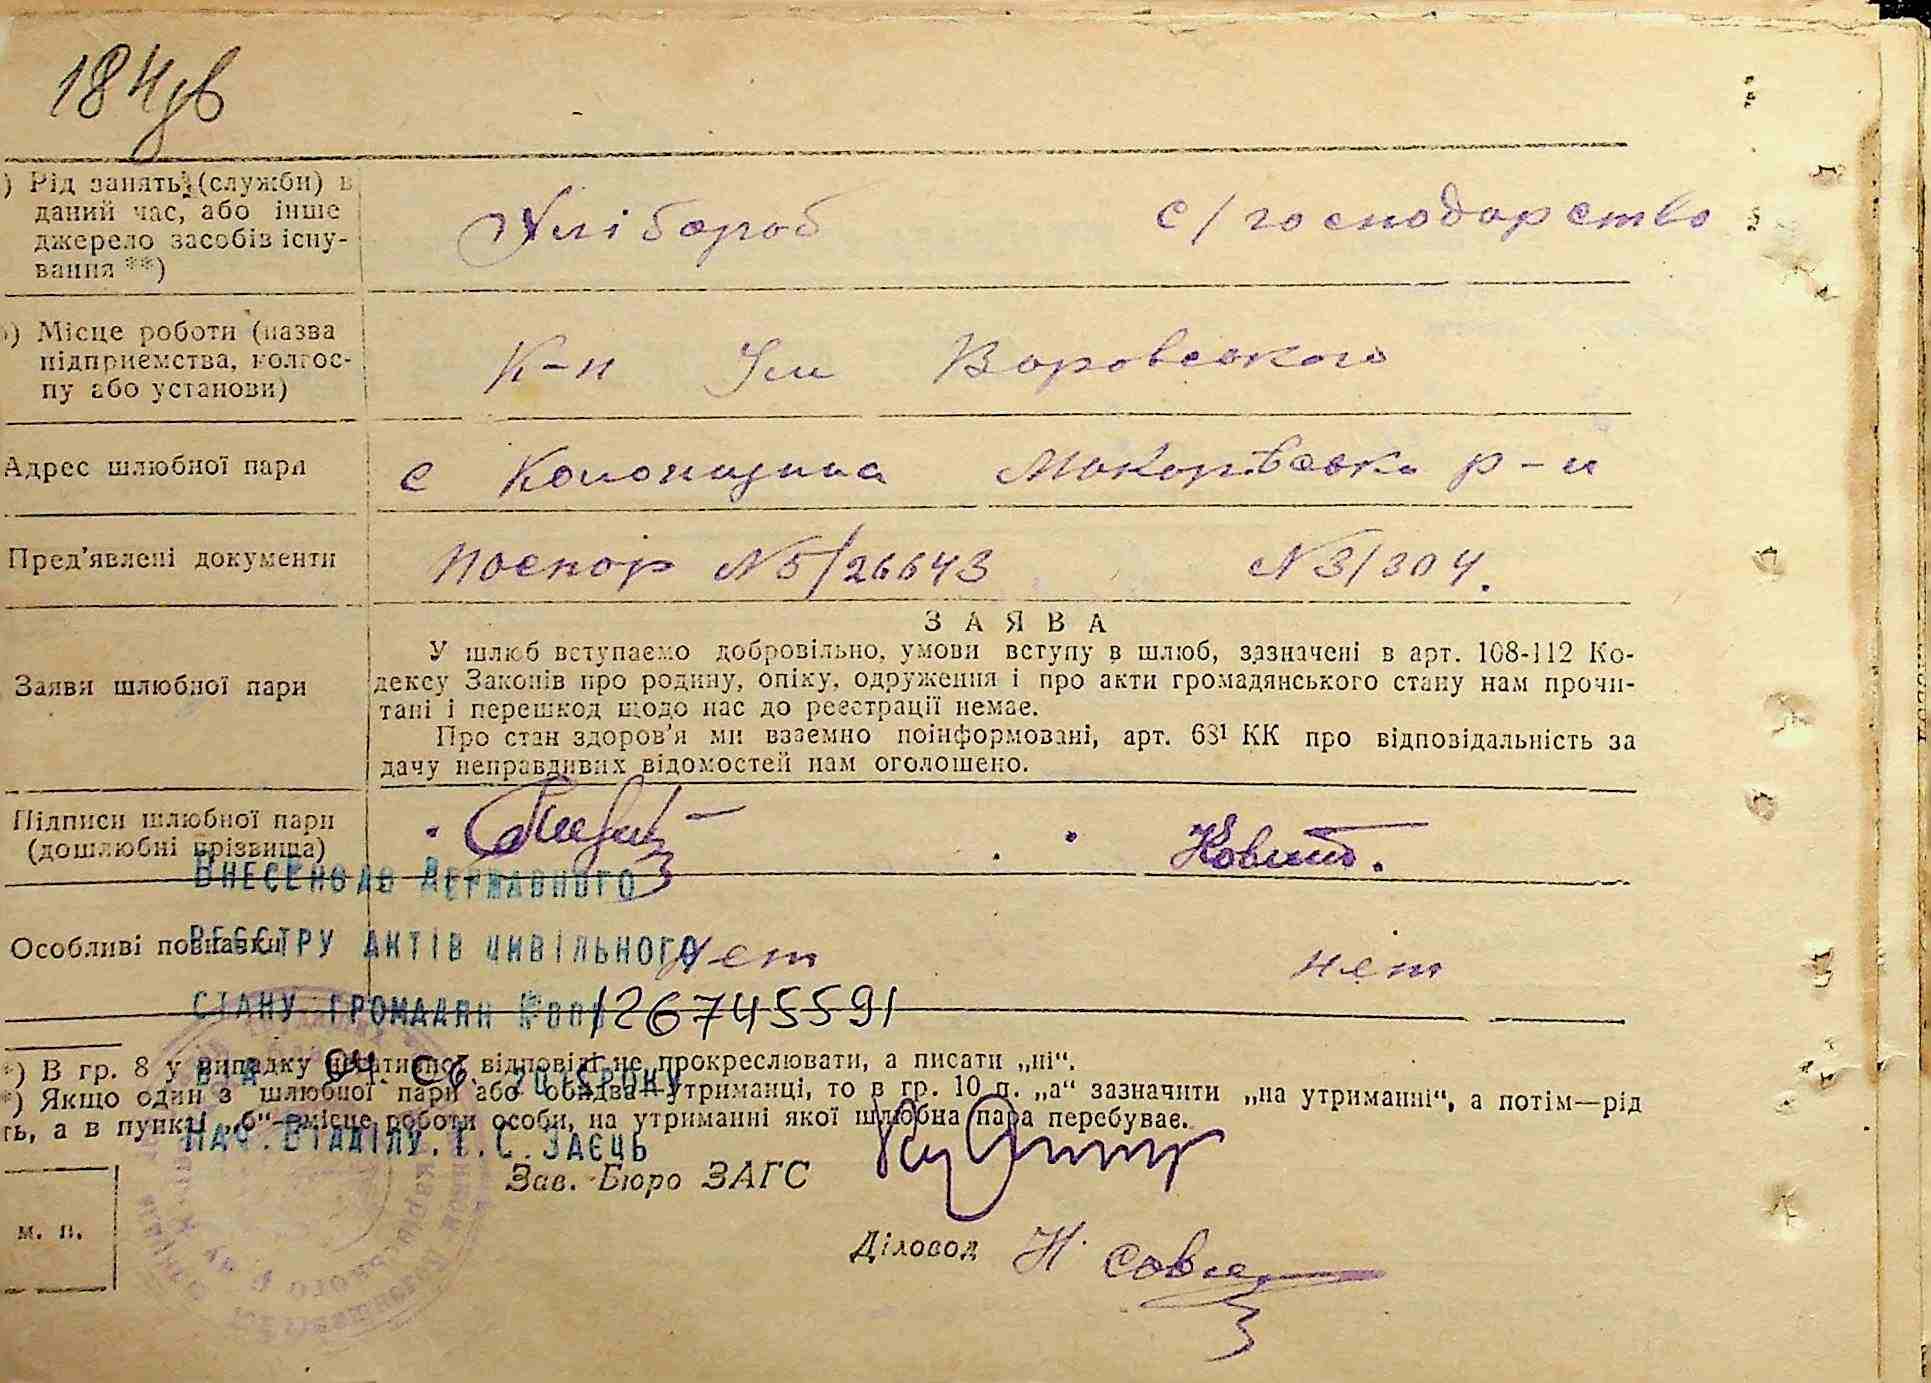 184зв
) Рід занять (служби) в
даний час, або інше
джерело засобів існу-
вання **)
Хлібороб с/господарство
) Місце роботи (назва
підприємства, колгос-
пу або установи)
К-п Ім Воровського
Адрес шлюбної пари
с Колонщина Макарівськ р-н
Пред'явлені документи
Поспор №5/26643 №3/304.
ЗАЯВА
Заяви шлюбної пари
У шлюб вступаємо добровільно, умови вступу в шлюб, зазначені в арт. 108-112 Ко-
дексу Законів про родину, опіку, одруження і про акти громадянського стану нам прочи-
тані і перешкод щодо нас до реєстрації немає.
Про стан здоров'я ми взаємно поінформовані, арт. 68¹ КК про відповідальність за
дачу неправдивих відомостей нам оголошено.
Підписи шлюбної пари
(дошлюбні прізвища)
ВНЕСЕНО ДО ДЕРЖАВНОГО
РЕЄСТРУ АКТІВ ЦИВІЛЬНОГО
СТАНУ ГРОМАДЯН 126745591
ВІД 04 06 2015 РОКУ
НАЧ. ВІДДІЛУ. Т.С. ЗАЄЦЬ
Особливі познаки
Нет нет
*) В гр. 8 у випадку негативної відповіді не прокреслювати, а писати „ні".
*) Якщо один з шлюбної пари або обидва—утриманці, то в гр. 10 п. „а" зазначити „на утриманні", а потім—рід
ть, а в пункті „б"—місце роботи особи, на утриманні якої шлюбна пара перебуває.
Зав. Бюро ЗАГС
м. п.
Діловод